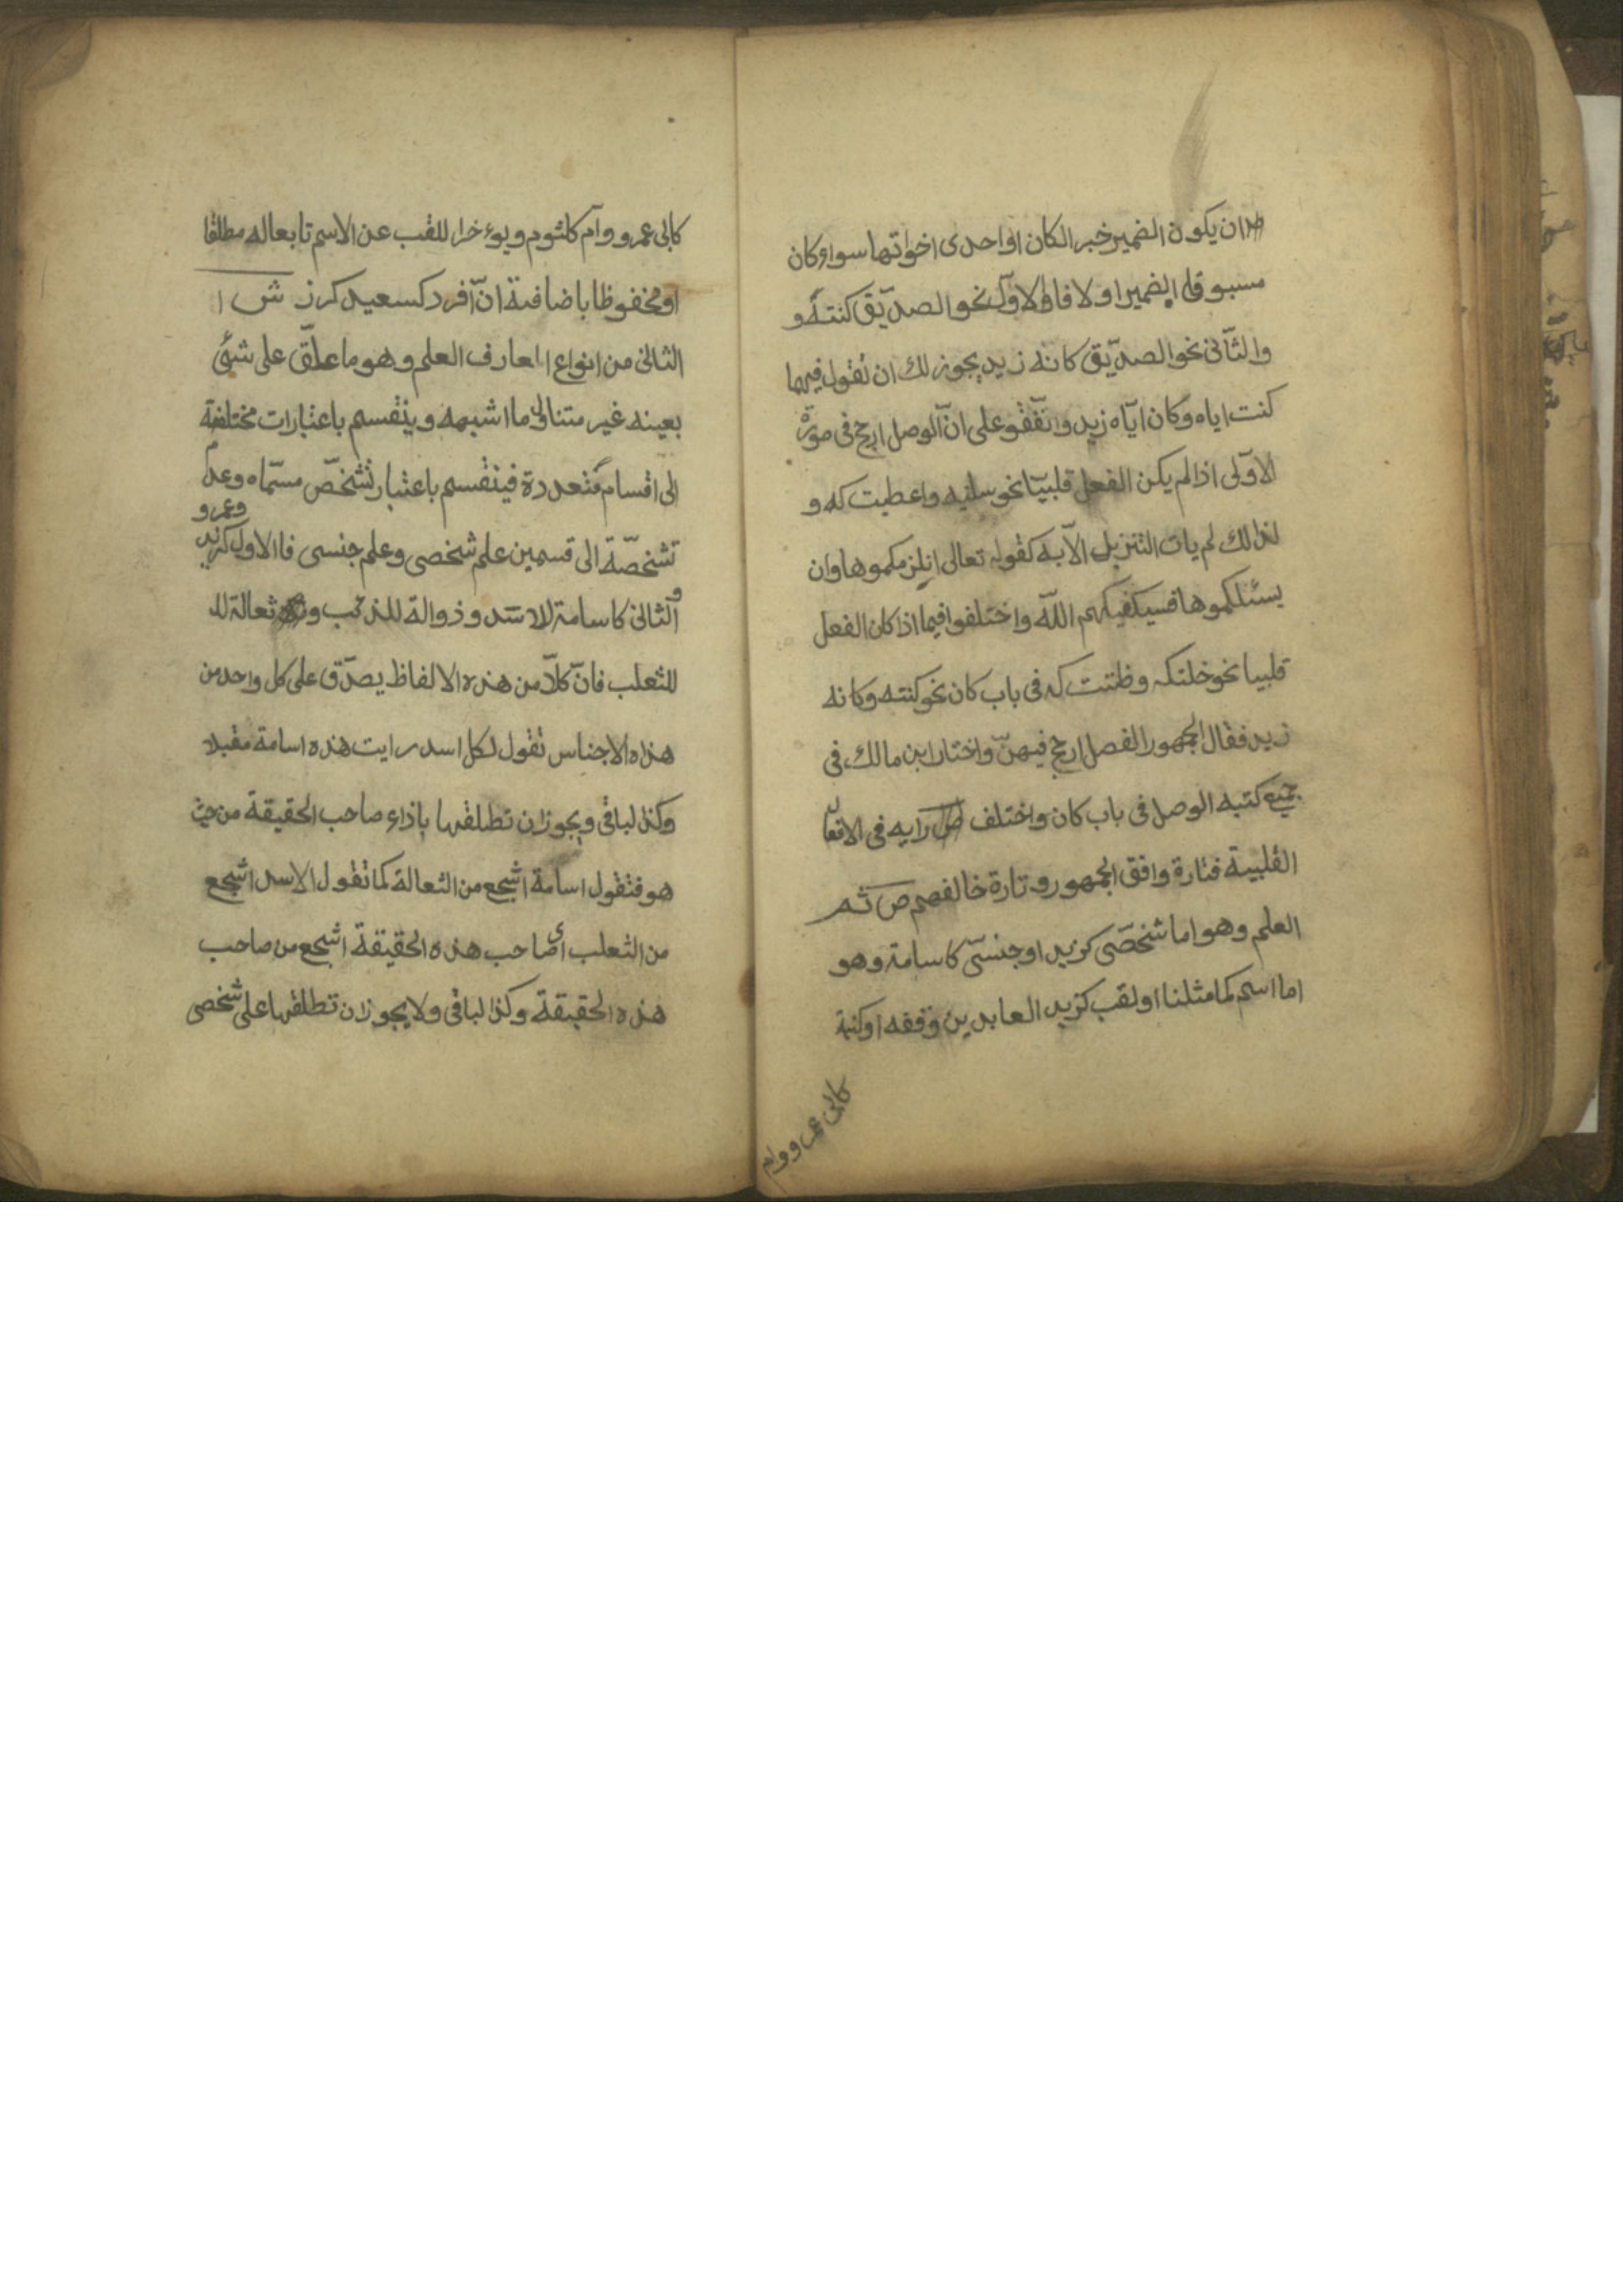 ان يكون الضمير خبر الكان او احدى اخواتها سوا وكان
مسبوقا بضمير او لا فالاول نحو الصديق كنته و
والثانى نحو الصديق كانه زيد يجوز لك ان تقول فيهما
كنت اياه وكان اياه زيد واتفقو على ان الوصل ارجح فى صورة
الاولى اذا لم يكن الفعل قلبيا نحو سلنيه واعطيتكه و
لذالك لم يات التنزيل الا به كقوله تعالى انلزمكموها وان
يسئلكموها فسيكفيكهم الله واختلفوا فيما اذا كان الفعل
قلبيا نحو خلتكه وظننتكه فى باب كان نحو كنته وكانه
زيد فقال الجمهور الفصل ارجح فيهن واختار ابن مالك فى
جميع كتبه الوصل فى باب كان واختلف رايه فى الافعال
القلبية فتارة وافق الجمهور وتارة خالفهم ص ثم
العلم وهو اما شخصى كزيد او جنسى كاسامة وهو
اما اسم كما مثلنا او لقب كزيد العابدين وقفه او كنية
كابى عمرو وام
كابى عمرو وام كلثوم ويوءخر اللقب عن الاسم تابعا له مطلقا
او مخفوظا باضافة ان افرد كسعيد كرز ش ا
الثانى من انواع المعارف العلم وهو ما علق على شئ
بعينه غير متناول ما اشبهه وينقسم باعتبارات مختلفة
الى اقسام متعددة فينقسم باعتبار تشخص مسماه وعدم
تشخصة الى قسمين علم شخصى وعلم جنسى فالاول كزيد وعمرو
والثانى كاسامة للاسد وذوالة للذئب وثعالة لل
للثعلب فان كلا من هذه الالفاظ يصدق على كل واحد من
هذاه الاجناس تقول لكل اسد رايت هذه اسامة مقبلا
وكذا لباقى ويجوز ان تطلقها باذاء صاحب الحقيقة من حيث
هو فتقول اسامة اشجع من الثعالة كما تقول الاسد اشجع
من الثعلب اى صاحب هذه الحقيقة اشجع من صاحب
هذه الحقيقة وكذا لباقى ولا يجوز ان تطلقها على شخصى